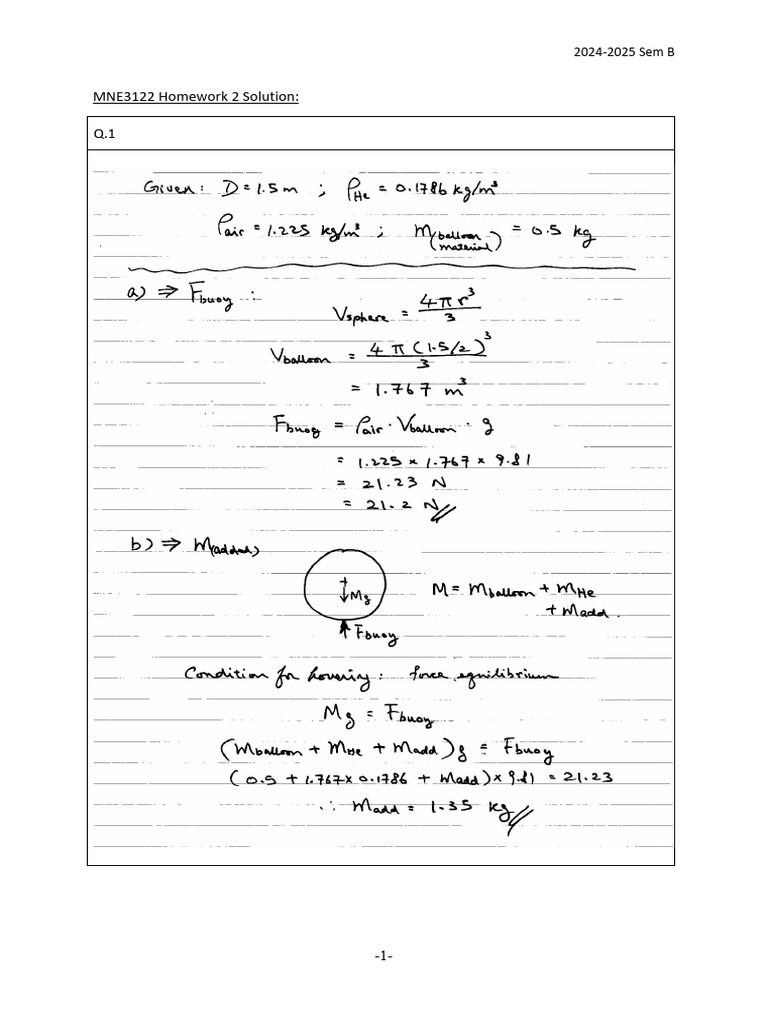 2024-2025 Sem B
MNE3122 Homework 2 Solution:
Q.1
Given: D = 1.5 m ; ρHe = 0.1786 kg/m³
ρair = 1.225 kg/m³ ; m(balloon material) = 0.5 kg
a) ⇒ Fbuoy :
Vsphere = 4πr³/3
Vballoon = 4π(1.5/2)³/3
= 1.767 m³
Fbuoy = ρair · Vballoon · g
= 1.225 × 1.767 × 9.81
= 21.23 N
= 21.2 N //
b) ⇒ m(added)
Mg
Fbuoy
M = mballoon + mHe
+ madd .
Condition for hovering : force equilibrium
Mg = Fbuoy
(mballoon + mHe + madd) g = Fbuoy
(0.5 + 1.767 × 0.1786 + madd) × 9.81 = 21.23
∴ madd = 1.35 kg //
-1-